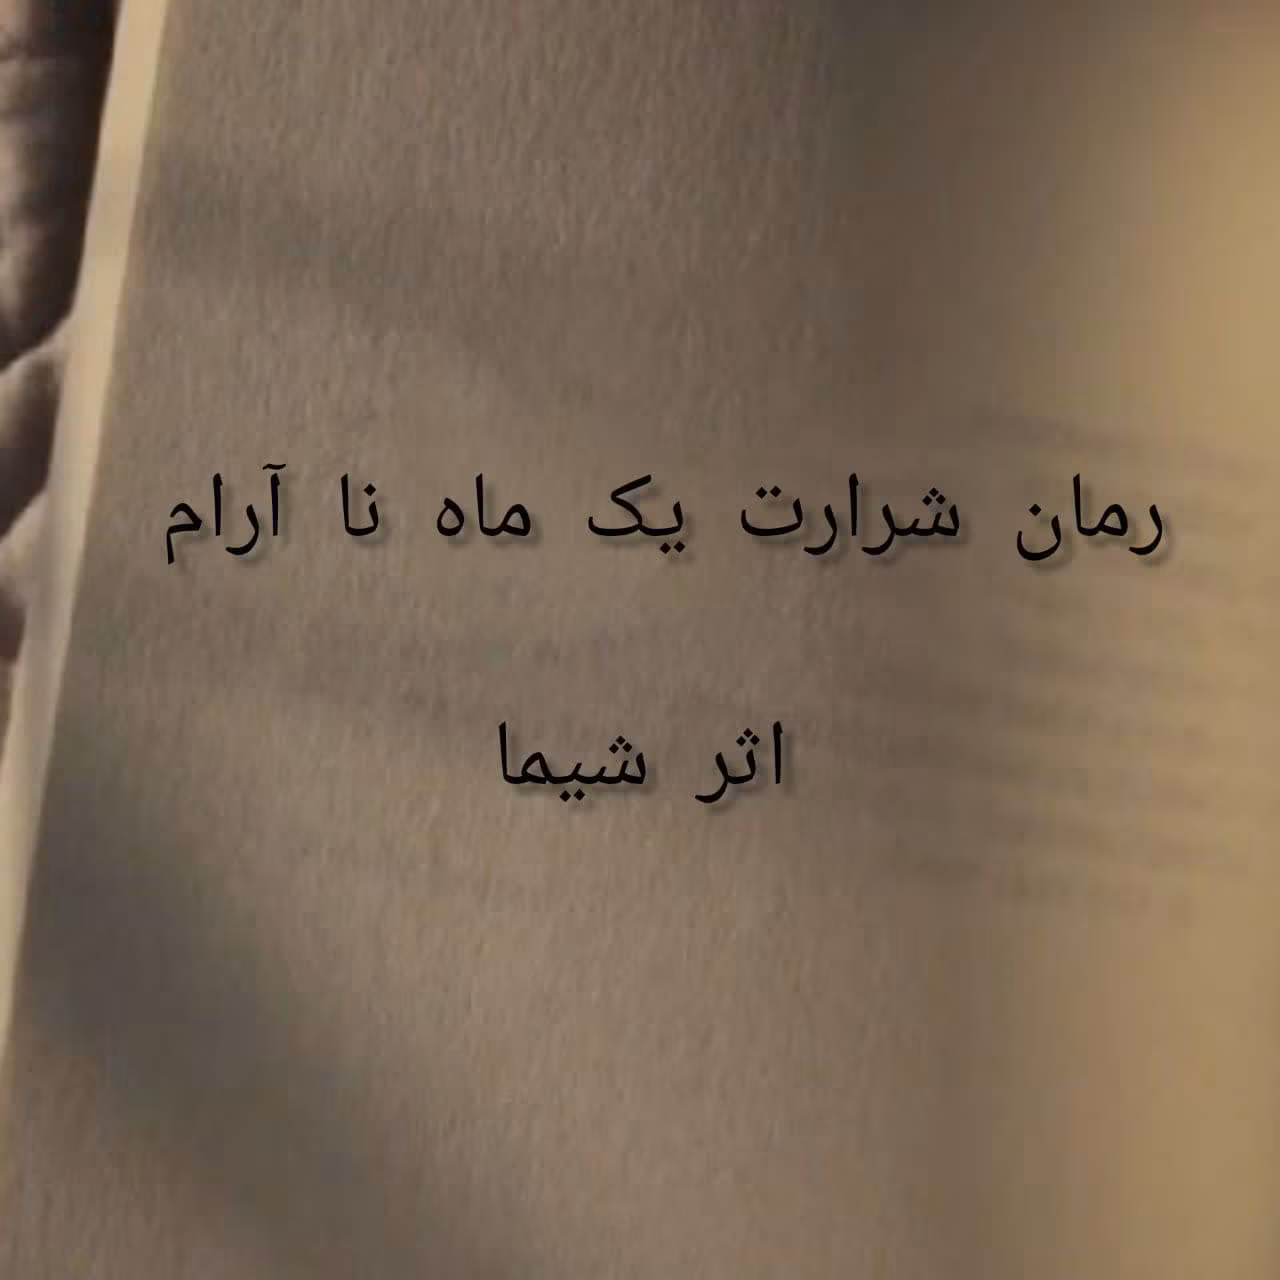 رمان شرارت یک ماه نا آرام
اثر شیما